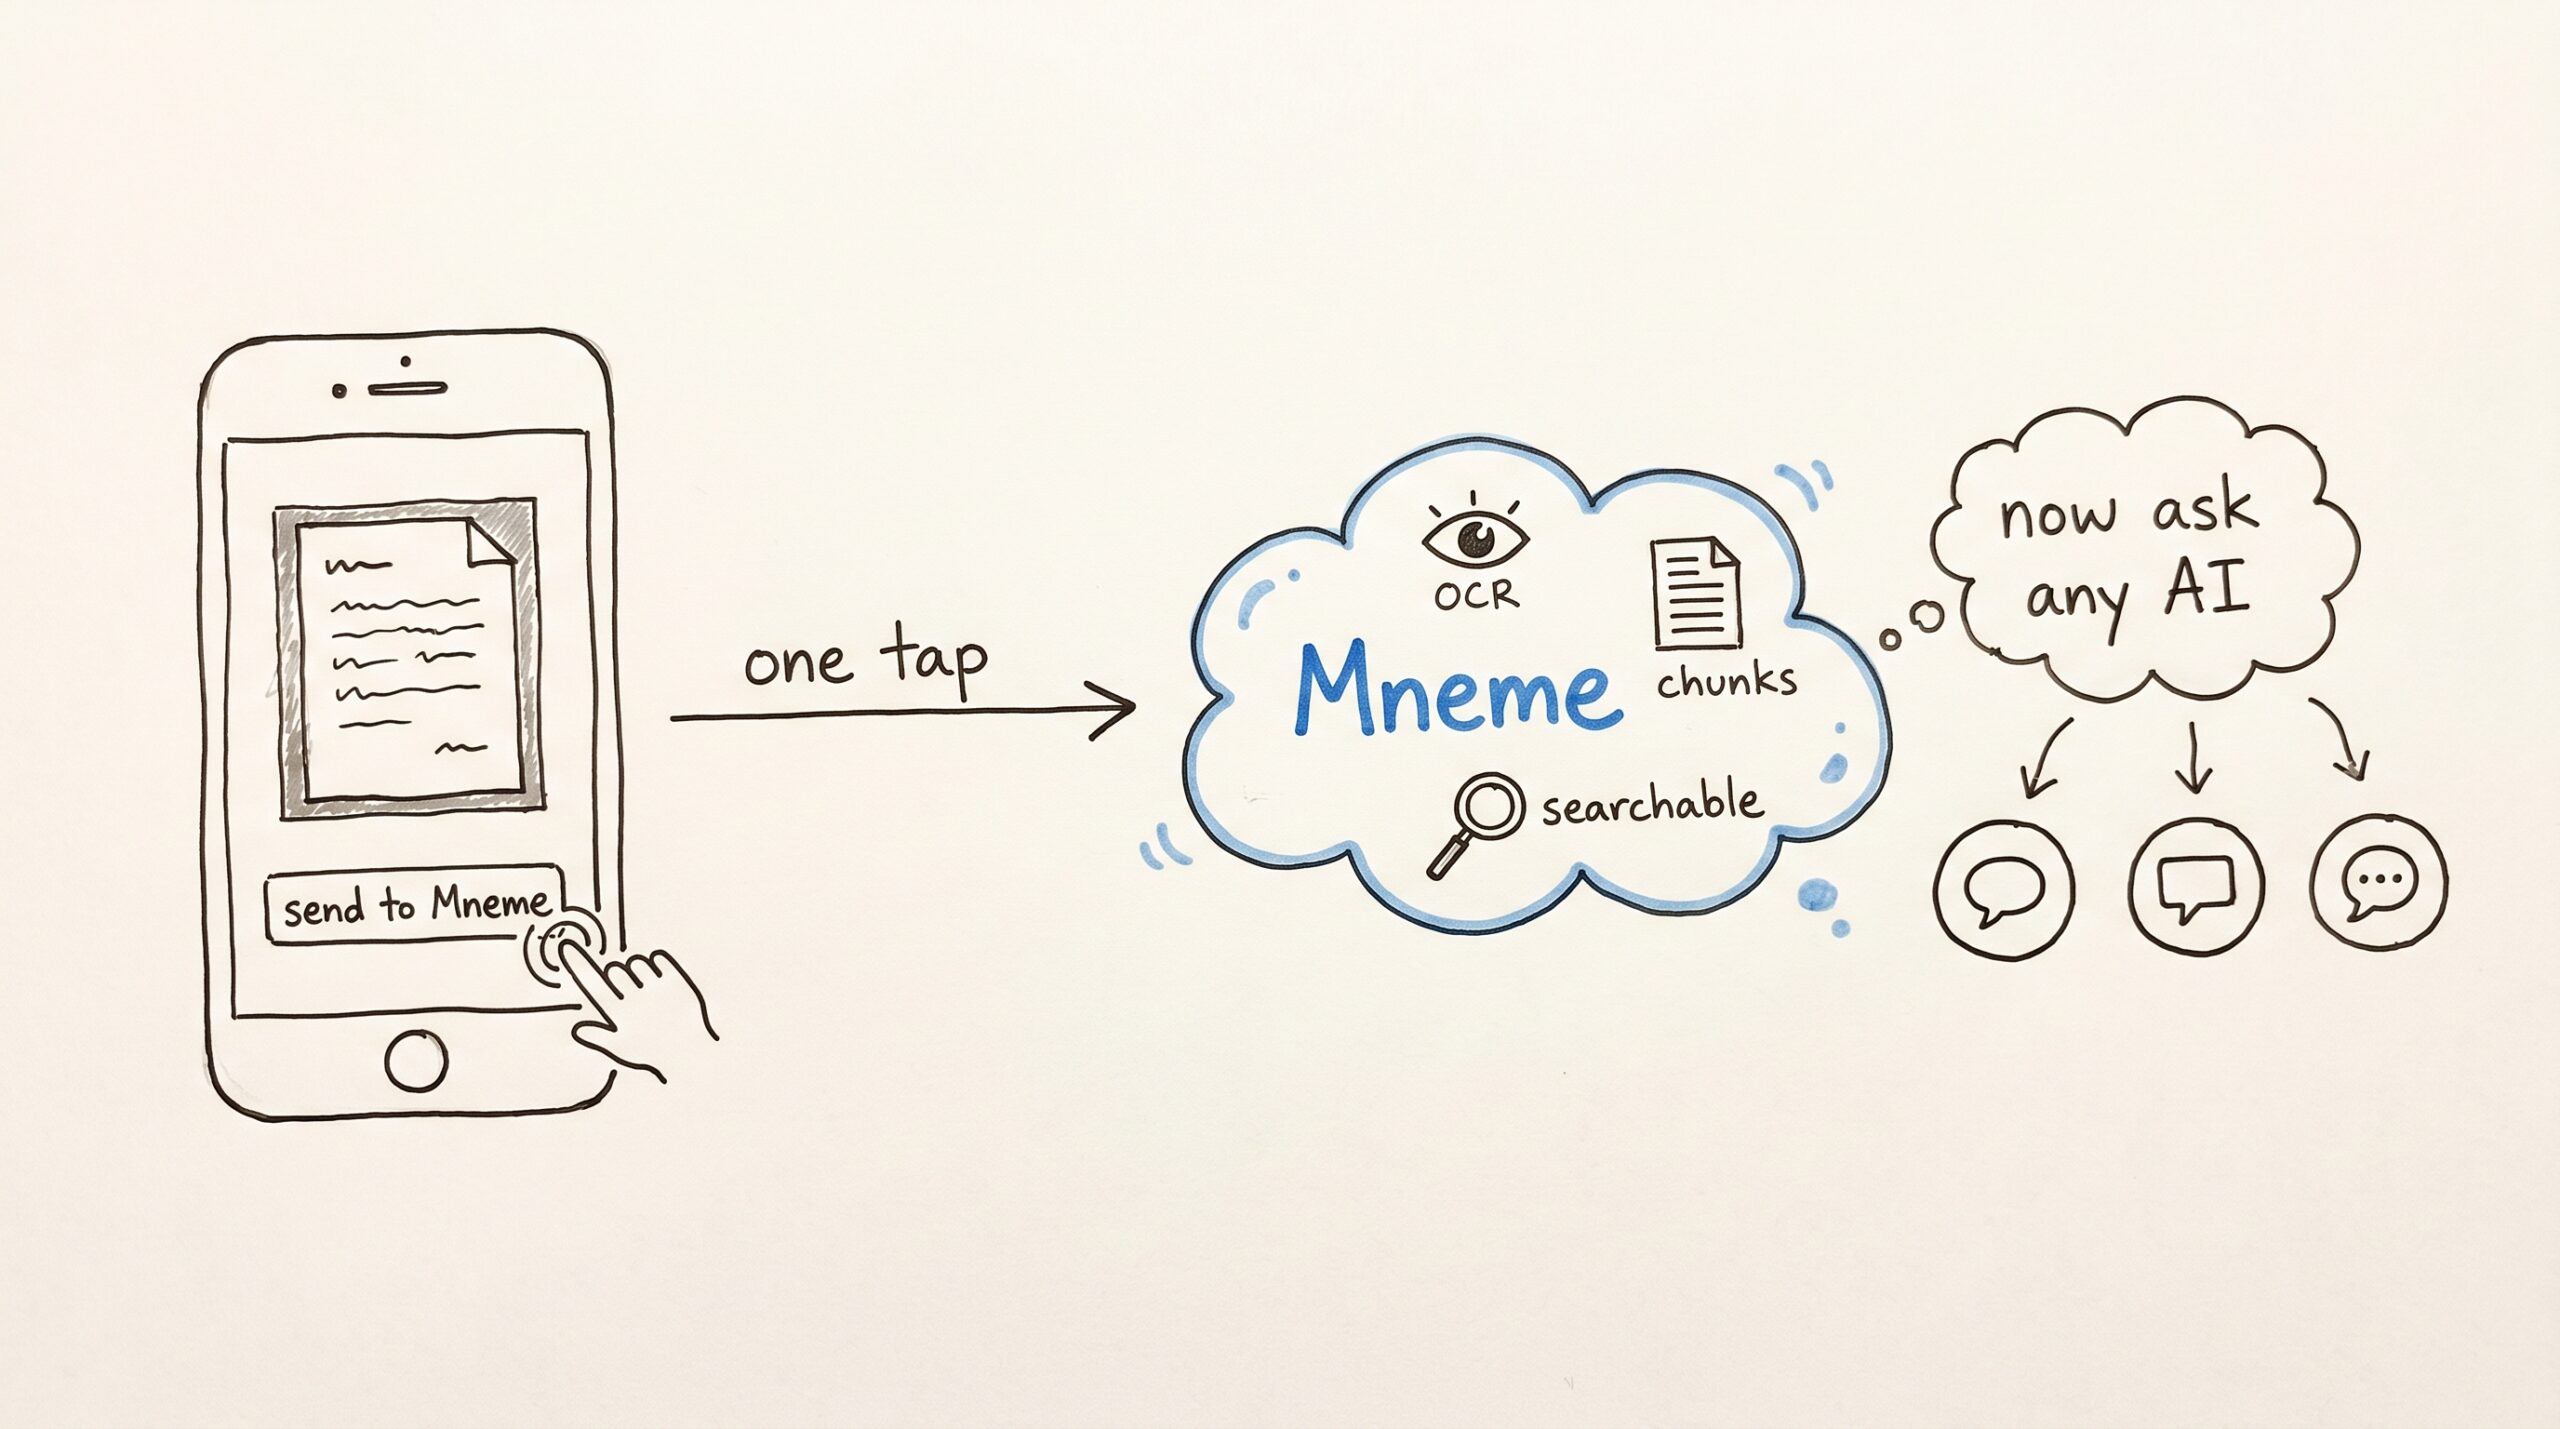 send to Mneme
one tap
OCR
chunks
Mneme
searchable
now ask
any AI